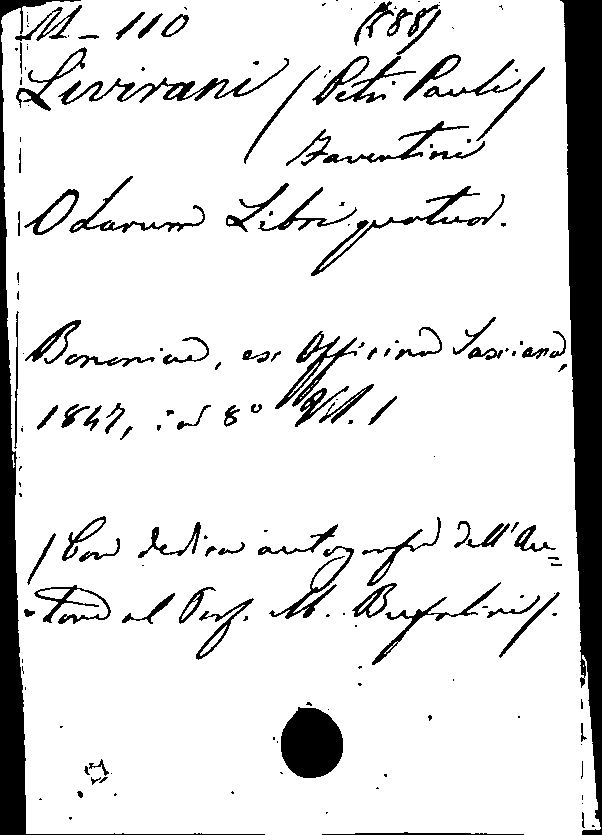 M - 110 (588)
Livirani / Petri Pauli /
Faventini
Odarum Libri quatuor.
Bononiae, ex Officina Sassiana,
1847, in 8° Vol. 1
/ Con dedica autografa dell'Au=
tore al Prof. M. Bufalini /.